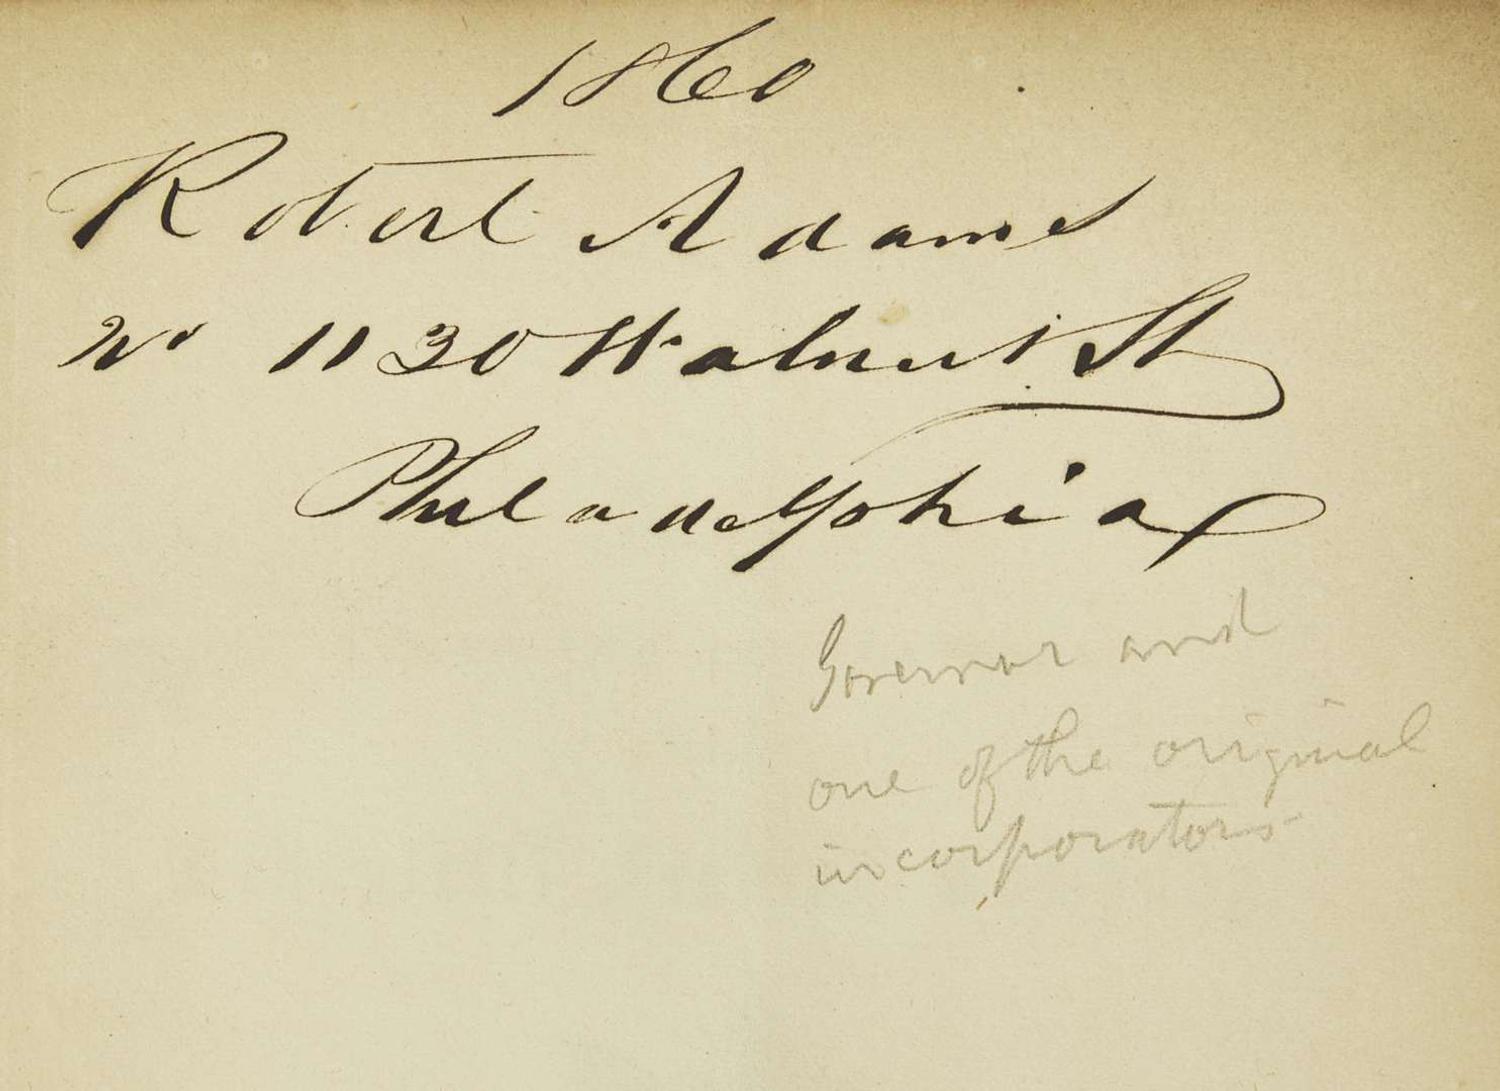 1860
Robert Adams
No 1130 Walnut St
Philadelphia
Governor and
one of the original
incorporators